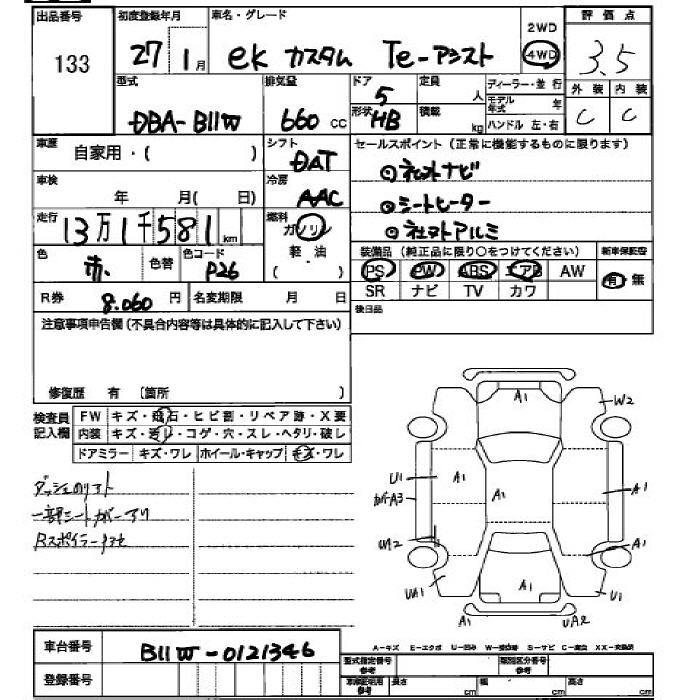 出品番号
133
初度登録年月
27年 1月
車名・グレード
eK カスタム Te-アシスト
2WD
4WD
評価点
3.5
外装 内装
C C
型式
DBA-B11W
排気量
660 cc
ドア
5
形状
HB
定員
人
積載
kg
ディーラー・並行
モデル年式 年
ハンドル 左・右
車歴
自家用・( )
シフト
DAT
セールスポイント (正常に機能するものに限ります)
①社外ナビ
◎シートヒーター
◎社外アルミ
車検
年 月( 日)
冷房
AAC
走行
13万1千581km
燃料
ガソリン
軽・油
( ・ )
色
赤
色替
色コード
P26
装備品 (純正品に限り○をつけてください)
新車保証書
PS PW ABS エアB AW
有 無
SR ナビ TV カワ
R券
8.060 円
名変期限 月 日
後日品
注意事項申告欄 (不具合内容等は具体的に記入して下さい)
修復歴 有 〔箇所 〕
検査員記入欄
FW キズ・飛石・ヒビ割・リペア跡・X要
内装 キズ・汚レ・コゲ・穴・スレ・ヘタリ・破レ
ドアミラー キズ・ワレ ホイール・キャップ キズ・ワレ
ダッシュのリフト
一部シートカバーアリ
Rスポイラー
A1
W2
U1
カバーA3
A1
A1
A1
A1
UW2
A1
UA1
A1
U1
A1
UA2
A-キズ E-エクボ U-凹み
S-サビ
XX-交換済
車台番号
B11W-0121346
登録番号
型式指定番号 参考
類別区分番号 参考
車庫証明用 参考
長さ cm
幅 cm
高さ cm